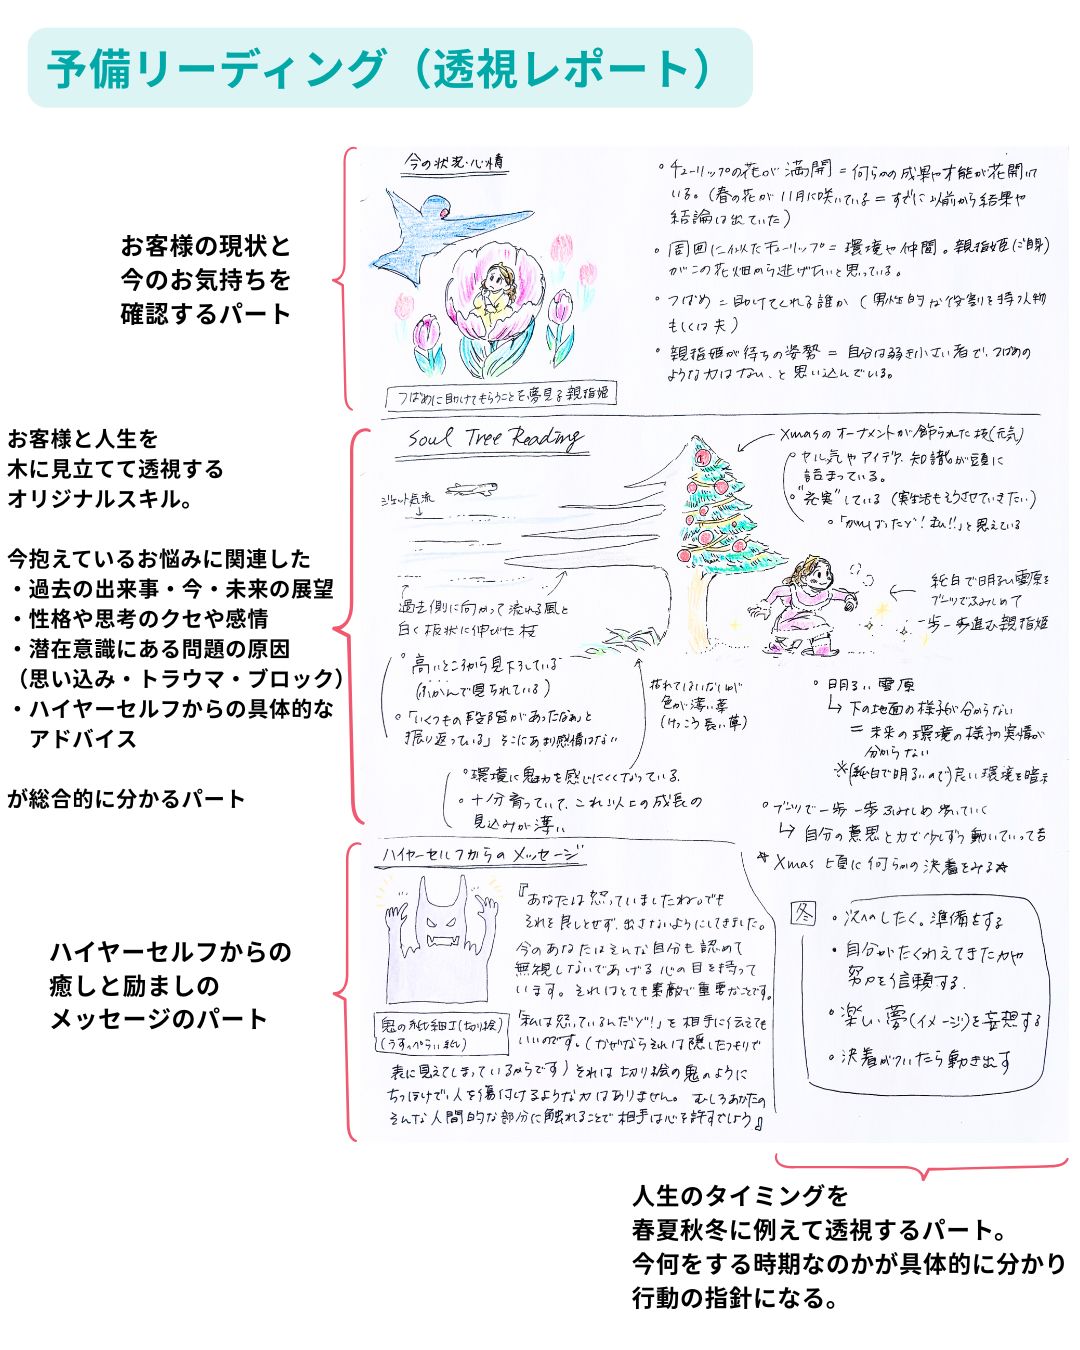 予備リーディング（透視レポート）
お客様の現状と
今のお気持ちを
確認するパート
今の状況・心情
つばめに助けてもらうことを夢見る親指姫
・チューリップの花が満開＝何らかの成果や才能が花開いて
いる。（春の花が11月に咲いている＝すでに以前から結果や
結論は出ていた）
・周囲に似たチューリップ＝環境や仲間。親指姫（ご自身）
がこの花畑から逃げたいと思っている。
・つばめ＝助けてくれる誰か（男性的な役割を持つ人物
もしくは夫）
・親指姫が待ちの姿勢＝自分は弱き小さい者で、つばめの
ような力はない、と思い込んでいる。
お客様と人生を
木に見立てて透視する
オリジナルスキル。
今抱えているお悩みに関連した
・過去の出来事・今・未来の展望
・性格や思考のクセや感情
・潜在意識にある問題の原因
（思い込み・トラウマ・ブロック）
・ハイヤーセルフからの具体的な
アドバイス
が総合的に分かるパート
Soul Tree Reading
ジェット気流
過去側に向かって流れる風と
白く板状に伸びた枝
・高いところから見下ろしている
・「いくつもの段階があったなぁ」と
振り返っている」そこにあまり感情はない
枯れてはいないが
色が薄い草
（けっこう長い草）
・環境に魅力を感じにくくなっている。
・十分育っていて、これ以上の成長の
見込みが薄い
Xmasのオーナメントが飾られた枝（元気）
・やる気やアイデア、知識が頭に
詰まっている。
・"充実"している（実生活もそうさせていきたい）
・「がんばったぞ！私!!」と思えている
純白で明るい雪原を
ブーツでふみしめて
一歩一歩進む親指姫
・明るい雪原
↳下の地面の様子が分からない
＝未来の環境の様子や実情が
分からない
※（純白で明るいので）良い環境を暗示
・ブーツで一歩一歩ふみしめ歩いていく
↳自分の意思と力で少しずつ動いていって吉
★Xmas頃に何らかの決着をみる★
ハイヤーセルフからの
癒しと励ましの
メッセージのパート
ハイヤーセルフからのメッセージ
鬼の紙細工（切り絵）
（うすっぺらい紙）
『あなたは怒っていましたね。でも
それを良しとせず、出さないようにしてきました。
今のあなたはそんな自分も認めて
無視しないであげる心の目を持って
います。それはとても素敵で重要なことです。
「私は怒っているんだぞ！」を相手に伝えても
いいのです。（なぜならそれは隠したつもりで
表に見えてしまっているからです）それは切り絵の鬼のように
ちっぽけで、人を傷付けるような力はありません。むしろあなたの
そんな人間的な部分に触れることで相手は心を許すでしょう』
冬
・次へのしたく。準備をする
・自分がたくわえてきた力や
努力を信頼する。
・楽しい夢（イメージ）を妄想する
・決着がついたら動き出す
人生のタイミングを
春夏秋冬に例えて透視するパート。
今何をする時期なのかが具体的に分かり
行動の指針になる。